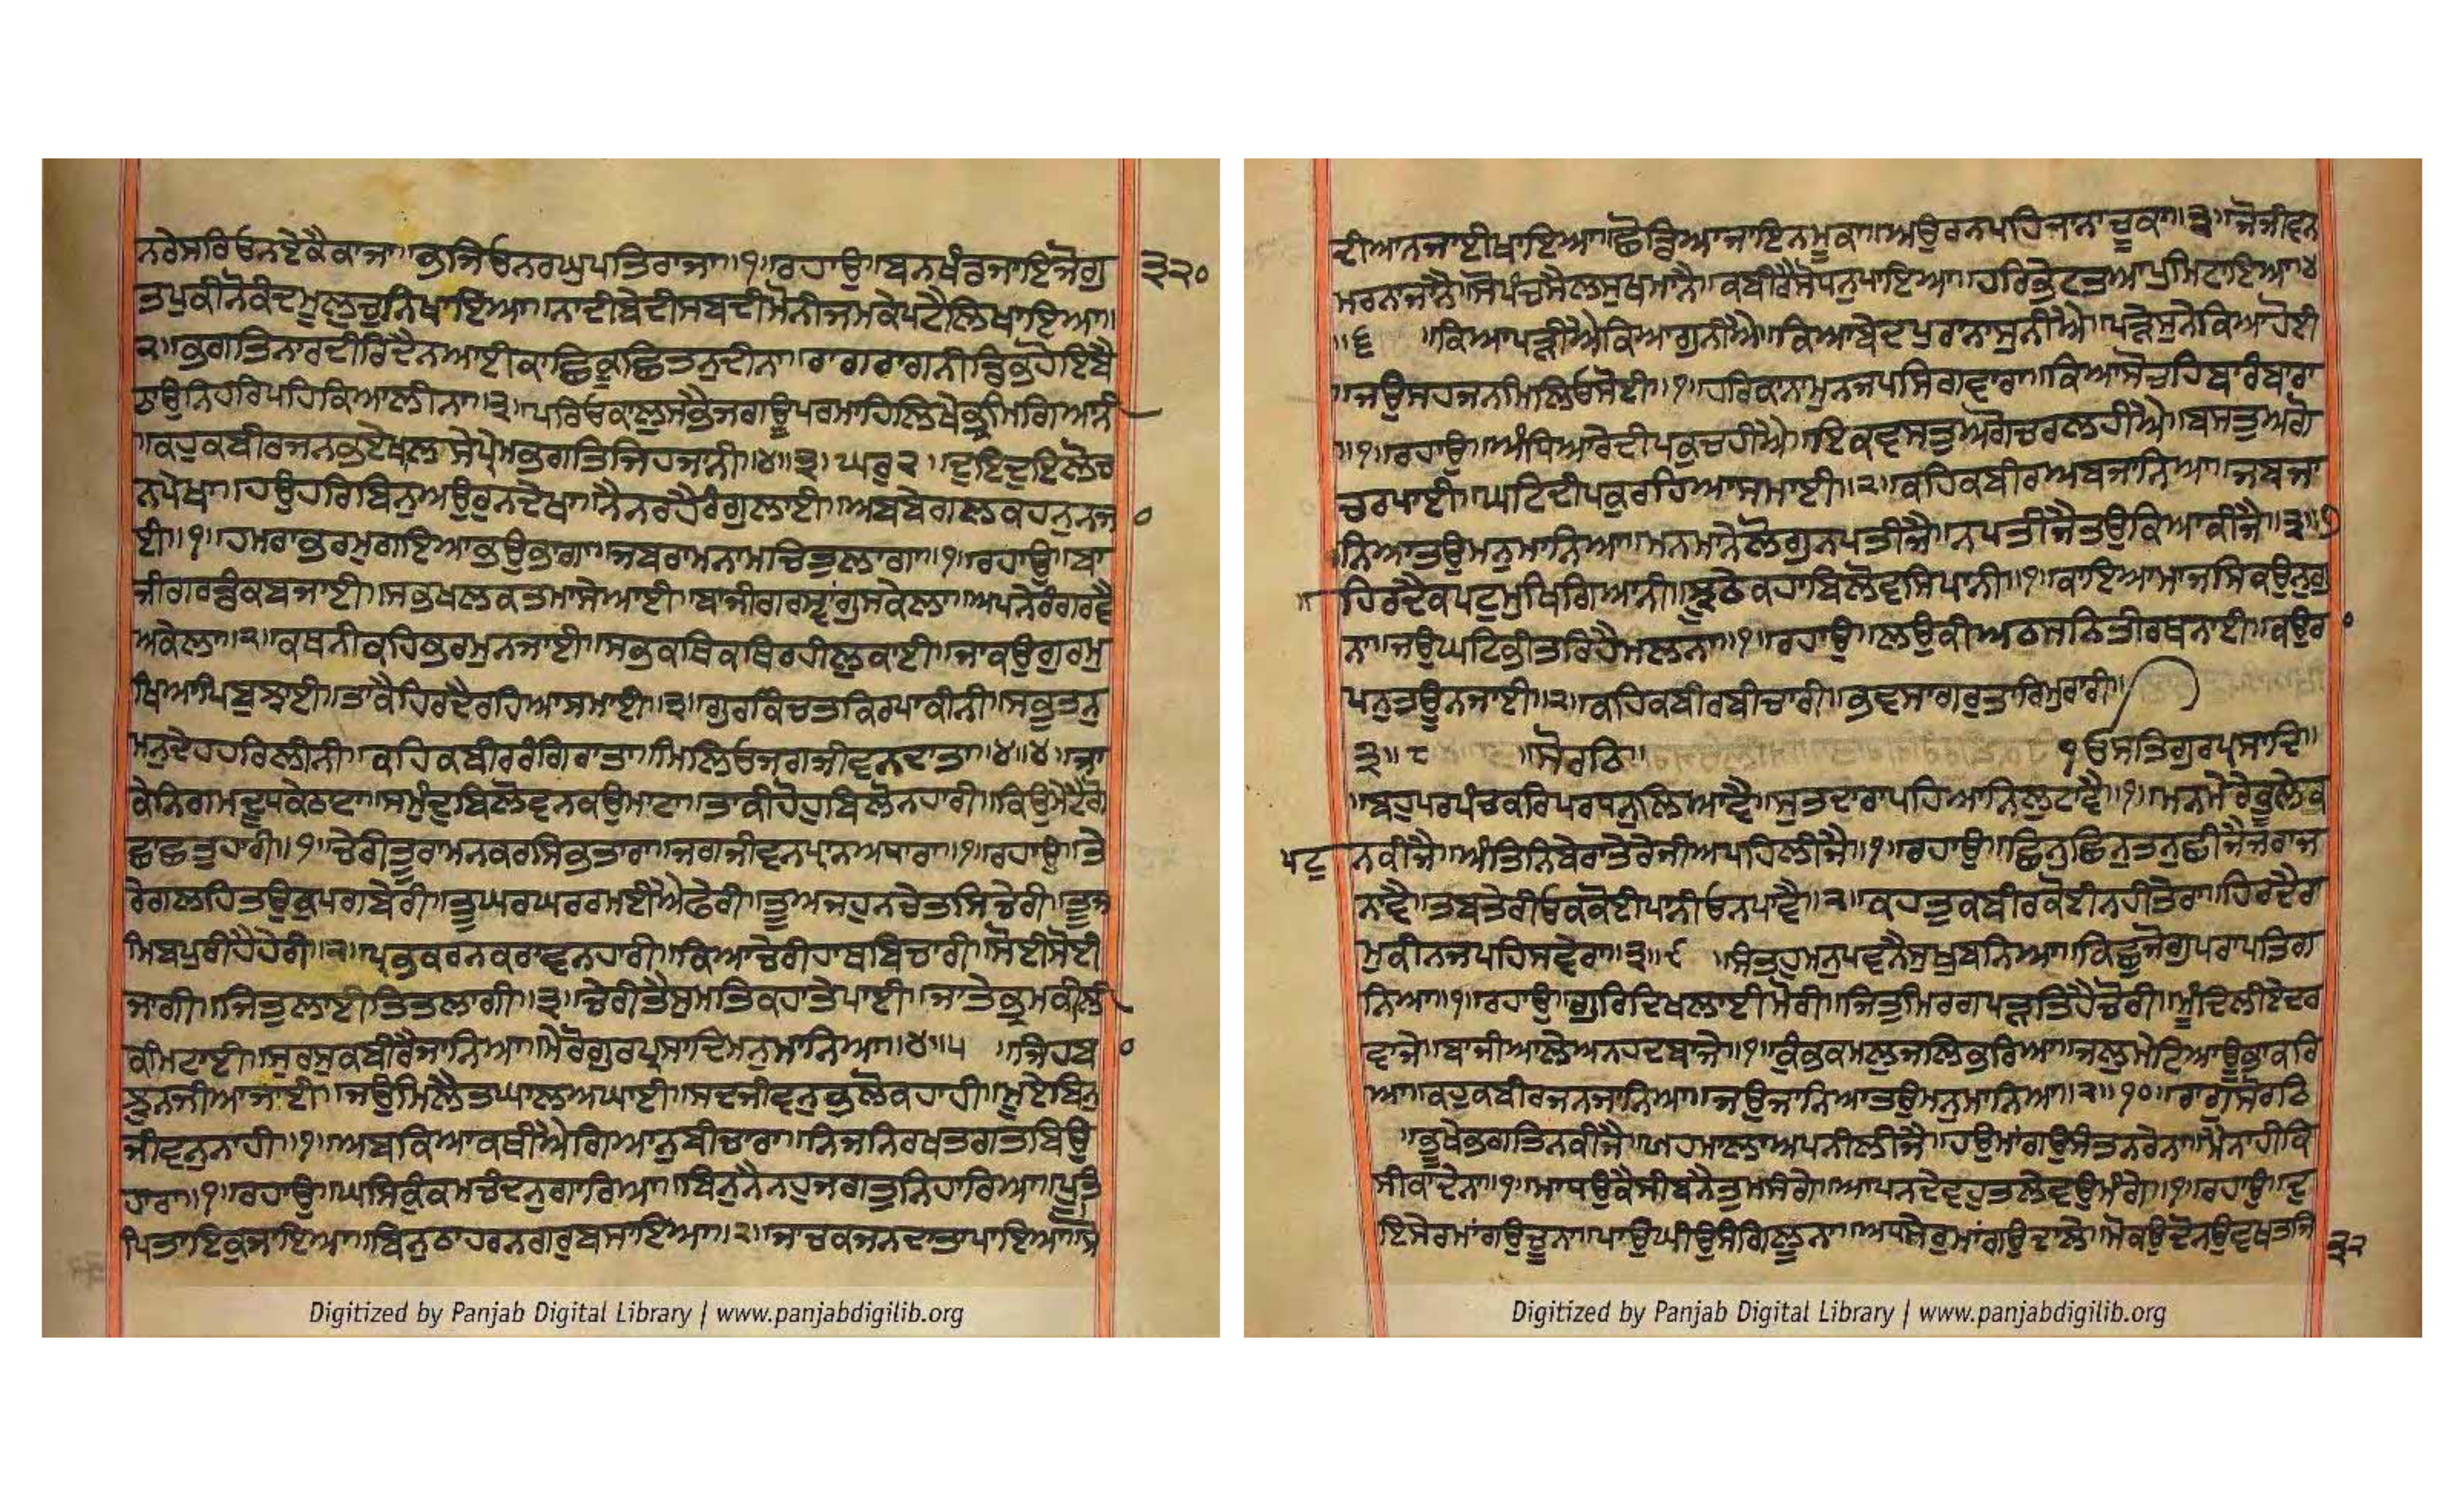 ਨਰੇਸਰਿਓਨਏਕੈਕਾਜਾ॥ਭਜਿਓਨਰਘੁਪਤਿਰਾਜਾ॥੧॥ਰਹਾਉ॥ਬਨਖੰਡਜਾਇਜੋਗੁ
੩੨੦
ਤਪੁਕੀਨੋਕੰਦਮੂਲੁਚੁਨਿਖਾਇਆ॥ਨਾਦੀਬੇਦੀਸਬਦੀਮੋਨੀਜਮਕੇਪਟੈਲਿਖਾਇਆ॥
੨॥ਭਗਤਿਨਾਰਦੀਰਿਦੈਨਆਈਕਾਛਿਕੂਛਿਤਨੁਦੀਨਾ॥ਰਾਗਰਾਗਨੀਡਿੰਭਹੋਇਬੈ
ਠਾਉਨਿਹਰਿਪਹਿਕਿਆਲੀਨਾ॥੩॥ਪਰਿਓਕਾਲੁਸਭੈਜਗਊਪਰਮਾਹਿਲਿਖੇਭ੍ਰਮਗਿਆਨੀ
॥ਕਹੁਕਬੀਰਜਨਭਏਖਲਾਸੇਪ੍ਰੇਮਭਗਤਿਜਿਹਜਾਨੀ॥੪॥੩॥ਘਰੁ੨॥ਦੁਇਦੁਇਲੋਚ
ਨਪੇਖਾ॥ਹਉਹਰਿਬਿਨੁਅਉਰੁਨਦੇਖਾ॥ਨੈਨਰਹੇਰੰਗੁਲਾਈ॥ਅਬਬੇਗਲਕਹਨੁਨਜਾ
ਈ॥੧॥ਹਮਰਾਭਰਮੁਗਇਆਭਉਭਾਗਾ॥ਜਬਰਾਮਨਾਮਚਿਤੁਲਾਗਾ॥੧॥ਰਹਾਉ॥ਬਾ
ਜੀਗਰਡੰਕਬਜਾਈ॥ਸਭਖਲਕਤਮਾਸੇਆਈ॥ਬਾਜੀਗਰਸ੍ਵਾਂਗੁਸਕੇਲਾ॥ਅਪਨੇਰੰਗਰਵੈ
ਅਕੇਲਾ॥੨॥ਕਥਨੀਕਹਿਭਰਮੁਨਜਾਈ॥ਸਭਕਥਿਕਥਿਰਹੀਲੁਕਾਈ॥ਜਾਕਉਗੁਰਮੁ
ਖਿਆਪਿਬੁਝਾਈ॥ਤਾਕੈਹਿਰਦੈਰਹਿਆਸਮਾਈ॥੩॥ਗੁਰਕਿੰਚਤਕਿਰਪਾਕੀਨੀ॥ਸਭੁਤਨੁ
ਮਨੁਦੇਹਹਰਿਲੀਨੀ॥ਕਹਿਕਬੀਰਰੰਗਿਰਾਤਾ॥ਮਿਲਿਓਜਗਜੀਵਨਦਾਤਾ॥੪॥੪॥ਜਾ
ਕੇਨਿਗਮਦੂਧਕੇਠਾਟਾ॥ਸਮੁੰਦੁਬਿਲੋਵਨਕਉਮਾਟਾ॥ਤਾਕੀਹੋਹੁਬਿਲੋਨਹਾਰੀ॥ਕਿਉਮੇਟੈਗੋ
ਛਾਛਤੁਹਾਰੀ॥੧॥ਚੇਰੀਤੂਰਾਮਨਕਰਸਿਭਤਾਰਾ॥ਜਗਜੀਵਨਪ੍ਰਾਨਅਧਾਰਾ॥੧॥ਰਹਾਉ॥ਤੇ
ਰੇਗਲਹਿਤਉਕੁਪਗਬੇਰੀ॥ਤੂਘਰਘਰਰਮਈਐਫੇਰੀ॥ਤੂਅਜਹੁਨਚੇਤਸਿਚੇਰੀ॥ਤੂਜ
ਮਿਬਪੁਰੀਹੈਹੇਰੀ॥੨॥ਪ੍ਰਭਕਰਨਕਰਾਵਨਹਾਰੀ॥ਕਿਆਚੇਰੀਹਾਥਬਿਚਾਰੀ॥ਸੋਈਸੋਈ
ਜਾਗੀ॥ਜਿਤੁਲਾਈਤਿਤਲਾਗੀ॥੩॥ਚੇਰੀਤੈਸੁਮਤਿਕਹਾਤੇਪਾਈ॥ਜਾਤੇਭ੍ਰਮਕੀਲੀ
ਕਮਿਟਾਈ॥ਸੁਰਸੁਕਬੀਰੈਜਾਨਿਆ॥ਮੇਰੋਗੁਰਪ੍ਰਸਾਦਿਮਨੁਮਾਨਿਆ॥੪॥੫ ॥ਜਿਹਬਾ
ਝੁਨਜੀਆਜਾਈ॥ਜਉਮਿਲੈਤਘਾਲਅਘਾਈ॥ਸਦਜੀਵਨੁਭਲੋਕਹਾਹੀ॥ਮੂਏਬਿਨੁ
ਜੀਵਨੁਨਾਹੀ॥੧॥ਅਬਕਿਆਕਥੀਐਗਿਆਨੁਬੀਚਾਰਾ॥ਨਿਜਨਿਰਖਤਗਤਬਿਉ
ਹਾਰਾ॥੧॥ਰਹਾਉ॥ਘਸਿਕੁੰਕਮਚੰਦਨੁਗਾਰਿਆ॥ਬਿਨੁਨੈਨਹੁਜਗਤੁਨਿਹਾਰਿਆ॥ਪੂਤਿ
ਪਿਤਾਇਕੁਜਾਇਆ॥ਬਿਨੁਠਾਹਰਨਗਰੁਬਸਾਇਆ॥੨॥ਜਾਚਕਜਨਦਾਤਾਪਾਇਆ॥ਸੋ
ਦੀਆਨਜਾਈਖਾਇਆ॥ਛੋਡਿਆਜਾਇਨਮੂਕਾ॥ਅਉਰਨਪਹਿਜਾਨਾਚੂਕਾ॥੩॥ਜੋਜੀਵਨ
ਮਰਨਾਜਾਨੈ॥ਸੋਪੰਚਸੈਲਸੁਖਮਾਨੈ॥ਕਬੀਰੈਸੋਧਨੁਪਾਇਆ॥ਹਰਿਭੇਟਤਆਪੁਮਿਟਾਇਆ॥੪
॥੬ ॥ਕਿਆਪੜੀਐਕਿਆਗੁਨੀਐ॥ਕਿਆਬੇਦਪੁਰਾਨਾਸੁਨੀਐ॥ਪੜੇਸੁਨੇਕਿਆਹੋਈ
॥ਜਉਸਹਜਨਮਿਲਿਓਸੋਈ॥੧॥ਹਰਿਕਾਨਾਮੁਨਜਪਸਿਗਵਾਰਾ॥ਕਿਆਸੋਚਹਿਬਾਰੰਬਾਰਾ
॥੧॥ਰਹਾਉ॥ਅੰਧਿਆਰੇਦੀਪਕੁਚਹੀਐ॥ਇਕਵਸਤੁਅਗੋਚਰਲਹੀਐ॥ਬਸਤੁਅਗੋ
ਚਰਪਾਈ॥ਘਟਿਦੀਪਕੁਰਹਿਆਸਮਾਈ॥੨॥ਕਹਿਕਬੀਰਅਬਜਾਨਿਆ॥ਜਬਜਾ
ਨਿਆਤਉਮਨੁਮਾਨਿਆ॥ਮਨਮਾਨੇਲੋਗੁਨਪਤੀਜੈ॥ਨਪਤੀਜੈਤਉਕਿਆਕੀਜੈ॥੩॥੭
ਹਿਰਦੈਕਪਟੁਮੁਖਿਗਿਆਨੀ॥ਝੂਠੇਕਹਾਬਿਲੋਵਸਿਪਾਨੀ॥੧॥ਕਾਇਆਮਾਜਸਿਕਉਨੁਗੁ
ਨਾ॥ਜਉਘਟਿਭੀਤਰਿਹੈਮਲਨਾ॥੧॥ਰਹਾਉ॥ਲਉਕੀਅਠਸਠਿਤੀਰਥਨਾਈ॥ਕਉਰਾ
ਪਨੁਤਊਨਜਾਈ॥੨॥ਕਹਿਕਬੀਰਬੀਚਾਰੀ॥ਭਵਸਾਗਰੁਤਾਰਿਮੁਰਾਰੀ॥
੩॥੮ ॥ਸੋਰਠਿ॥ ੧ਓਸਤਿਗੁਰਪ੍ਰਸਾਦਿ॥
॥ਬਹੁਪਰਪੰਚਕਰਿਪਰਧਨੁਲਿਆਵੈ॥ਸੁਤਦਾਰਾਪਹਿਆਨਿਲੁਟਾਵੈ॥੧॥ਮਨਮੇਰੇਭੂਲੇਕ
ਪਟੁ
ਨਕੀਜੈ॥ਅੰਤਿਨਿਬੇਰਾਤੇਰੇਜੀਅਪਹਿਲੀਜੈ॥੧॥ਰਹਾਉ॥ਛਿਨੁਛਿਨੁਤਨੁਛੀਜੈਜਰਾਜ
ਨਾਵੈ॥ਤਬਤੇਰੀਓਕਕੋਈਪਾਨੀਓਨਪਾਵੈ॥੨॥ਕਹਤੁਕਬੀਰਕੋਈਨਹੀਤੇਰਾ॥ਹਿਰਦੈਰਾ
ਮੁਕੀਨਜਪਹਿਸਵੇਰਾ॥੩॥੯ ॥ਸੰਤਹੁਮਨੁਪਵਨੈਸੁਖੁਬਨਿਆ॥ਕਿਛੁਜੋਗੁਪਰਾਪਤਿਗ
ਨਿਆ॥੧॥ਰਹਾਉ॥ਗੁਰਿਦਿਖਲਾਈਮੋਰੀ॥ਜਿਤੁਮਿਰਗਪੜਤਹੈਚੋਰੀ॥ਮੂੰਦਿਲੀਏਦਰ
ਵਾਜੇ॥ਬਾਜੀਆਲੇਅਨਹਦਬਾਜੇ॥੧॥ਕੁੰਭਕਮਲੁਜਲਿਭਰਿਆ॥ਜਲੁਮੇਟਿਆਊਭਾਕਰਿ
ਆ॥ਕਹੁਕਬੀਰਜਨਜਾਨਿਆ॥ਜਉਜਾਨਿਆਤਉਮਨੁਮਾਨਿਆ॥੨॥੧੦॥ਰਾਗੁਸੋਰਠਿ
॥ਭੂਖੇਭਗਤਿਨਕੀਜੈ॥ਯਹਮਾਲਾਅਪਨੀਲੀਜੈ॥ਹਉਮਾਂਗਉਸੰਤਨਰੇਨਾ॥ਮੈਨਾਹੀਕਿ
ਸੀਕਾਦੇਨਾ॥੧॥ਮਾਧਉਕੈਸੀਬਨੈਤੁਮਸੰਗੇ॥ਆਪਨਦੇਵਹੁਤਲੇਵਉਮੰਗੇ॥੧॥ਰਹਾਉ॥ਦੁ
ਇਸੇਰਮਾਂਗਉਚੂਨਾ॥ਪਾਉਘੀਉਸੰਗਿਲੂਨਾ॥ਅਧਸੇਰੁਮਾਂਗਉਦਾਲੇ॥ਮੋਕਉਦੋਨਉਵਖਤਜਿ
੩੨